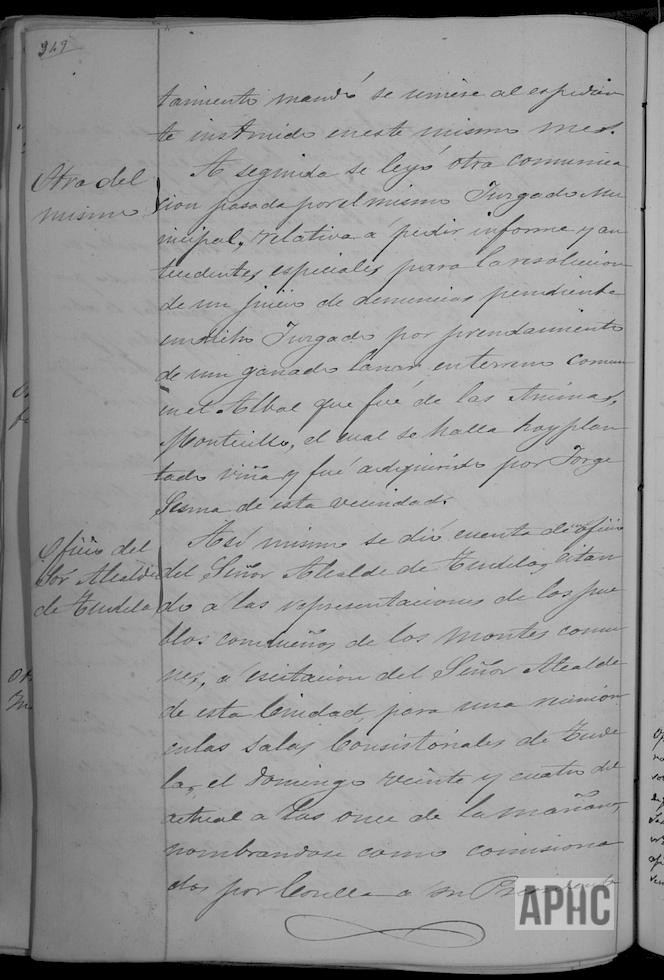 349
tamiento mandó se uniese al expedien
te instruido en este mismo mes.
Otra del
mismo
A seguida se leyó otra comunica
cion pasada por el mismo Juzgado Mu
nicipal, relativa á pedir informe y an
tecedentes especiales para la resolucion
de un juicio de denuncias pendiente
en dicho Juzgado por prendamiento
de un ganado lanar, en terreno comun
en el Albal que fué de las Animas,
Monticillo, el cual se halla hoy plan
tado viña y fue adquirido por Jorge
Sesma de esta vecindad.
Oficio del
Sor Alcalde
de Tudela
Así mismo se dió cuenta de oficio
del Señor Alcalde de Tudela, citan
do a las representaciones de los pue
blos condueños de los montes comu
nes, a escitacion del Señor Alcalde
de esta Ciudad, para una reunion
en las salas Consistoriales de Tude
la, el Domingo veinte y cuatro del
actual a las once de la mañana,
nombrandose como comisiona
dos por Corella a Dn
APHC